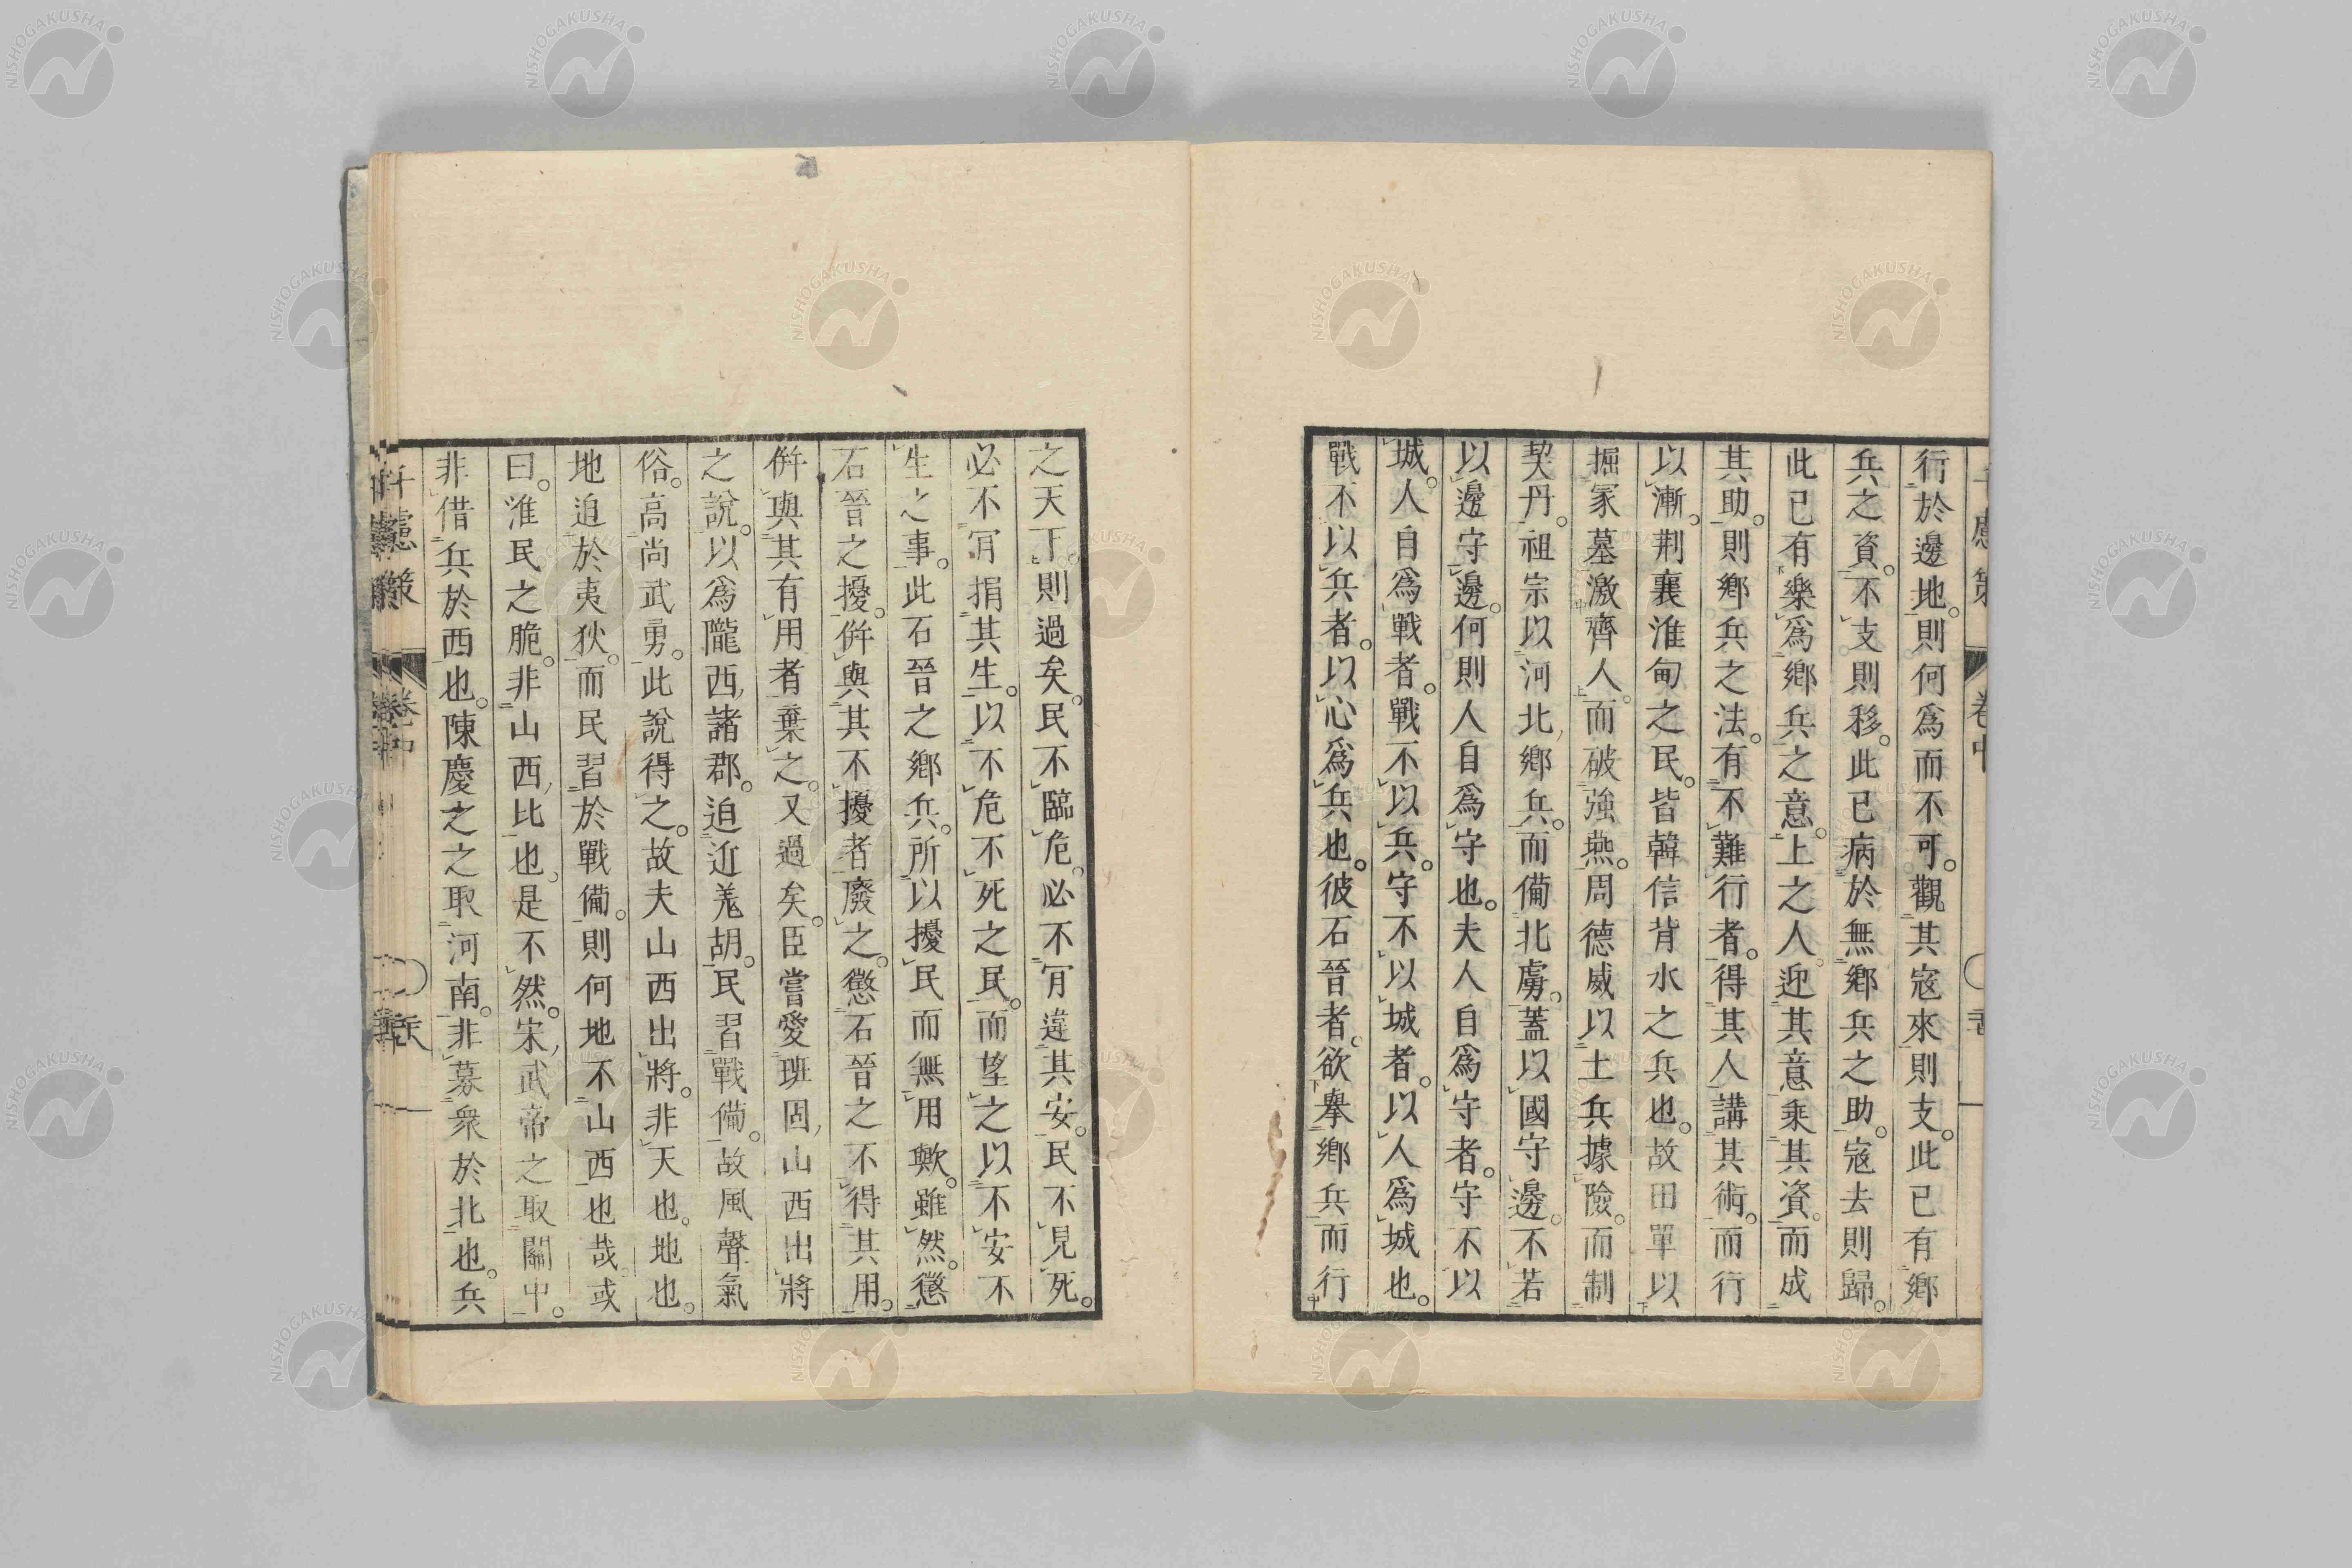 行於邊地。則何爲而不可。觀其寇來則支。此已有鄉
兵之資。不支則移。此已病於無鄉兵之助。寇去則歸。
此已有樂爲鄉兵之意。上之人迎其意乘其資。而成
其助。則鄉兵之法。有不難行者。得其人講其術。而行
以漸。荆襄淮甸之民。皆韓信背水之兵也。故田單以
掘冢墓激齊人。而破強燕。周德威以土兵據險。而制
契丹。祖宗以河北鄉兵。而備北虜。蓋以國守邊。不若
以邊守邊。何則人自爲守也。夫人自爲守者。守不以
城。人自爲戰者。戰不以兵。守不以城者。以人爲城也。
戰不以兵者。以心爲兵也。彼石晉者。欲擧鄉兵而行
之天下。則過矣。民不臨危。必不肎違其安。民不見死。
必不肎捐其生。以不危不死之民。而望之以不安不
生之事。此石晉之鄉兵。所以擾民而無用歟。雖然。懲
石晉之擾。倂與其不擾者廢之。懲石晉之不得其用。
倂與其有用者棄之。又過矣。臣嘗愛班固山西出將
之說。以爲隴西諸郡。迫近羗胡。民習戰備。故風聲氣
俗。高尚武勇。此說得之。故夫山西出將。非天也。地也。
地迫於夷狄。而民習於戰備。則何地不山西也哉。或
曰。淮民之脆。非山西比也。是不然。宋武帝之取關中。
非借兵於西也。陳慶之之取河南。非募衆於北也。兵
千慮策 卷中
NISHOGAKUSHA